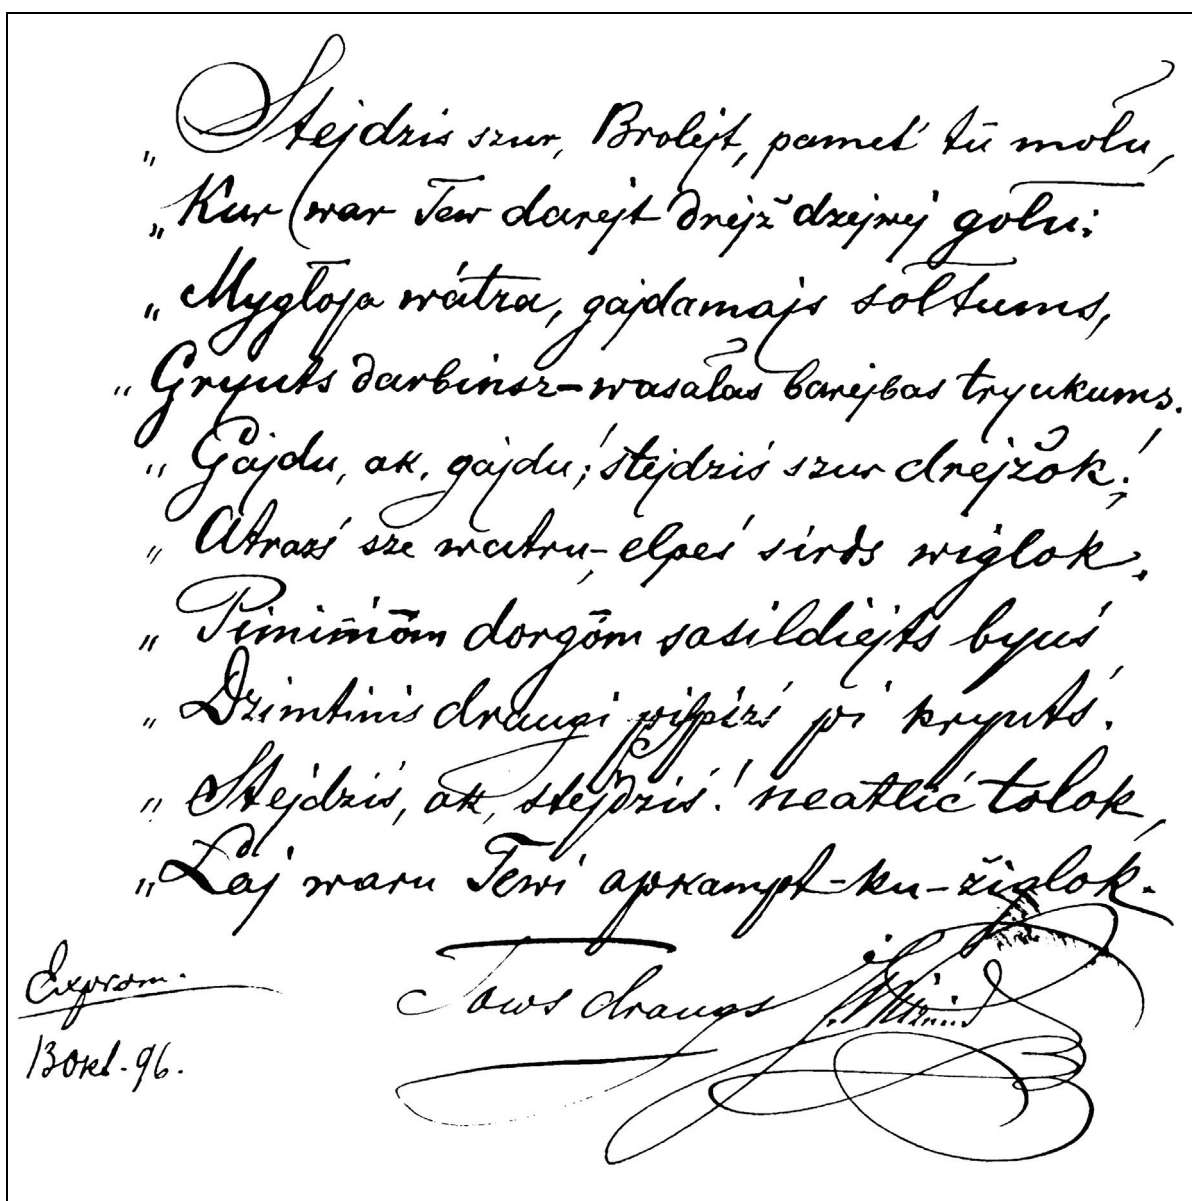 „Stejdziś szur, Brolejt, pameť tū mołu,
„Kur war Tew darejt drejž dzejwej gołu:
„Mygłoja wátra, gajdamajs sołtums,
„Gryuts darbinsz–wasałas barejbas tryukums.
„Gajdu, ak, gajdu; stejdziś szur drejžok!
„Atrazś sze watru, elpeś sirds wiglok.
„Piminiom dorgōm sasildiejts byuś
„Dzimtinis draugi pi kryutś.
„Stejdziś, ak, stejdziś! neatlić tolok,
„Laj waru Tewi apkampt–ku–žiglok.
Tows draugs
Exprom.
13 okt. 96.